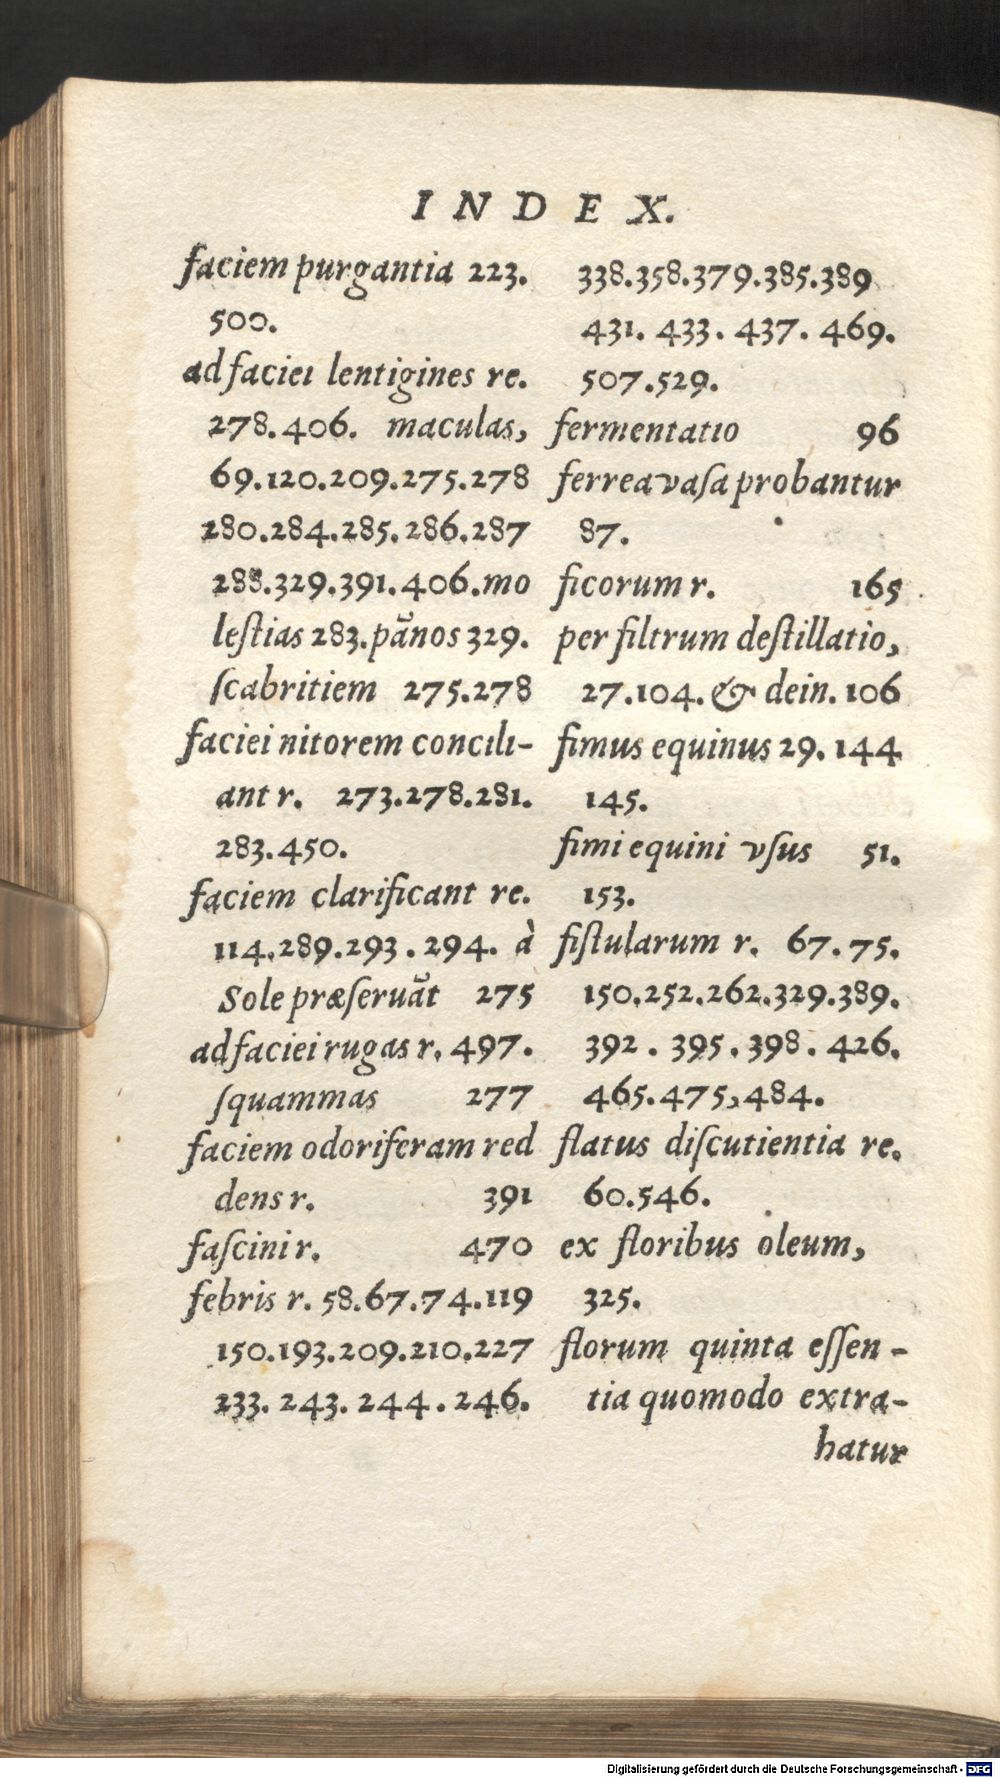 INDEX.
faciem purgantia 223.
500.
ad faciei lentigines re.
278.406. maculas,
69.120.209.275.278
280.284.285.286.287
288.329.391.406.mo
leſtias 283.pãnos 329.
ſcabritiem 275.278
faciei nitorem concili-
ant r. 273.278.281.
283.450.
faciem clarificant re.
114.289.293.294. à
Sole præſeruãt 275
ad faciei rugas r. 497.
ſquammas 277
faciem odoriferam red
dens r. 391
faſcini r. 470
febris r. 58.67.74.119
150.193.209.210.227
233. 243. 244. 246.
338.358.379.385.389
431. 433. 437. 469.
507.529.
fermentatio 96
ferrea vaſa probantur
87.
ficorum r. 165
per filtrum deſtillatio,
27.104. & dein. 106
fimus equinus 29. 144
145.
fimi equini vſus 51.
153.
fiſtularum r. 67. 75.
150.252.262.329.389.
392. 395. 398. 426.
465.475,484.
flatus diſcutientia re.
60.546.
ex floribus oleum,
325.
florum quinta eſſen-
tia quomodo extra-
hatur
Digitalisierung gefördert durch die Deutsche Forschungsgemeinschaft - DFG